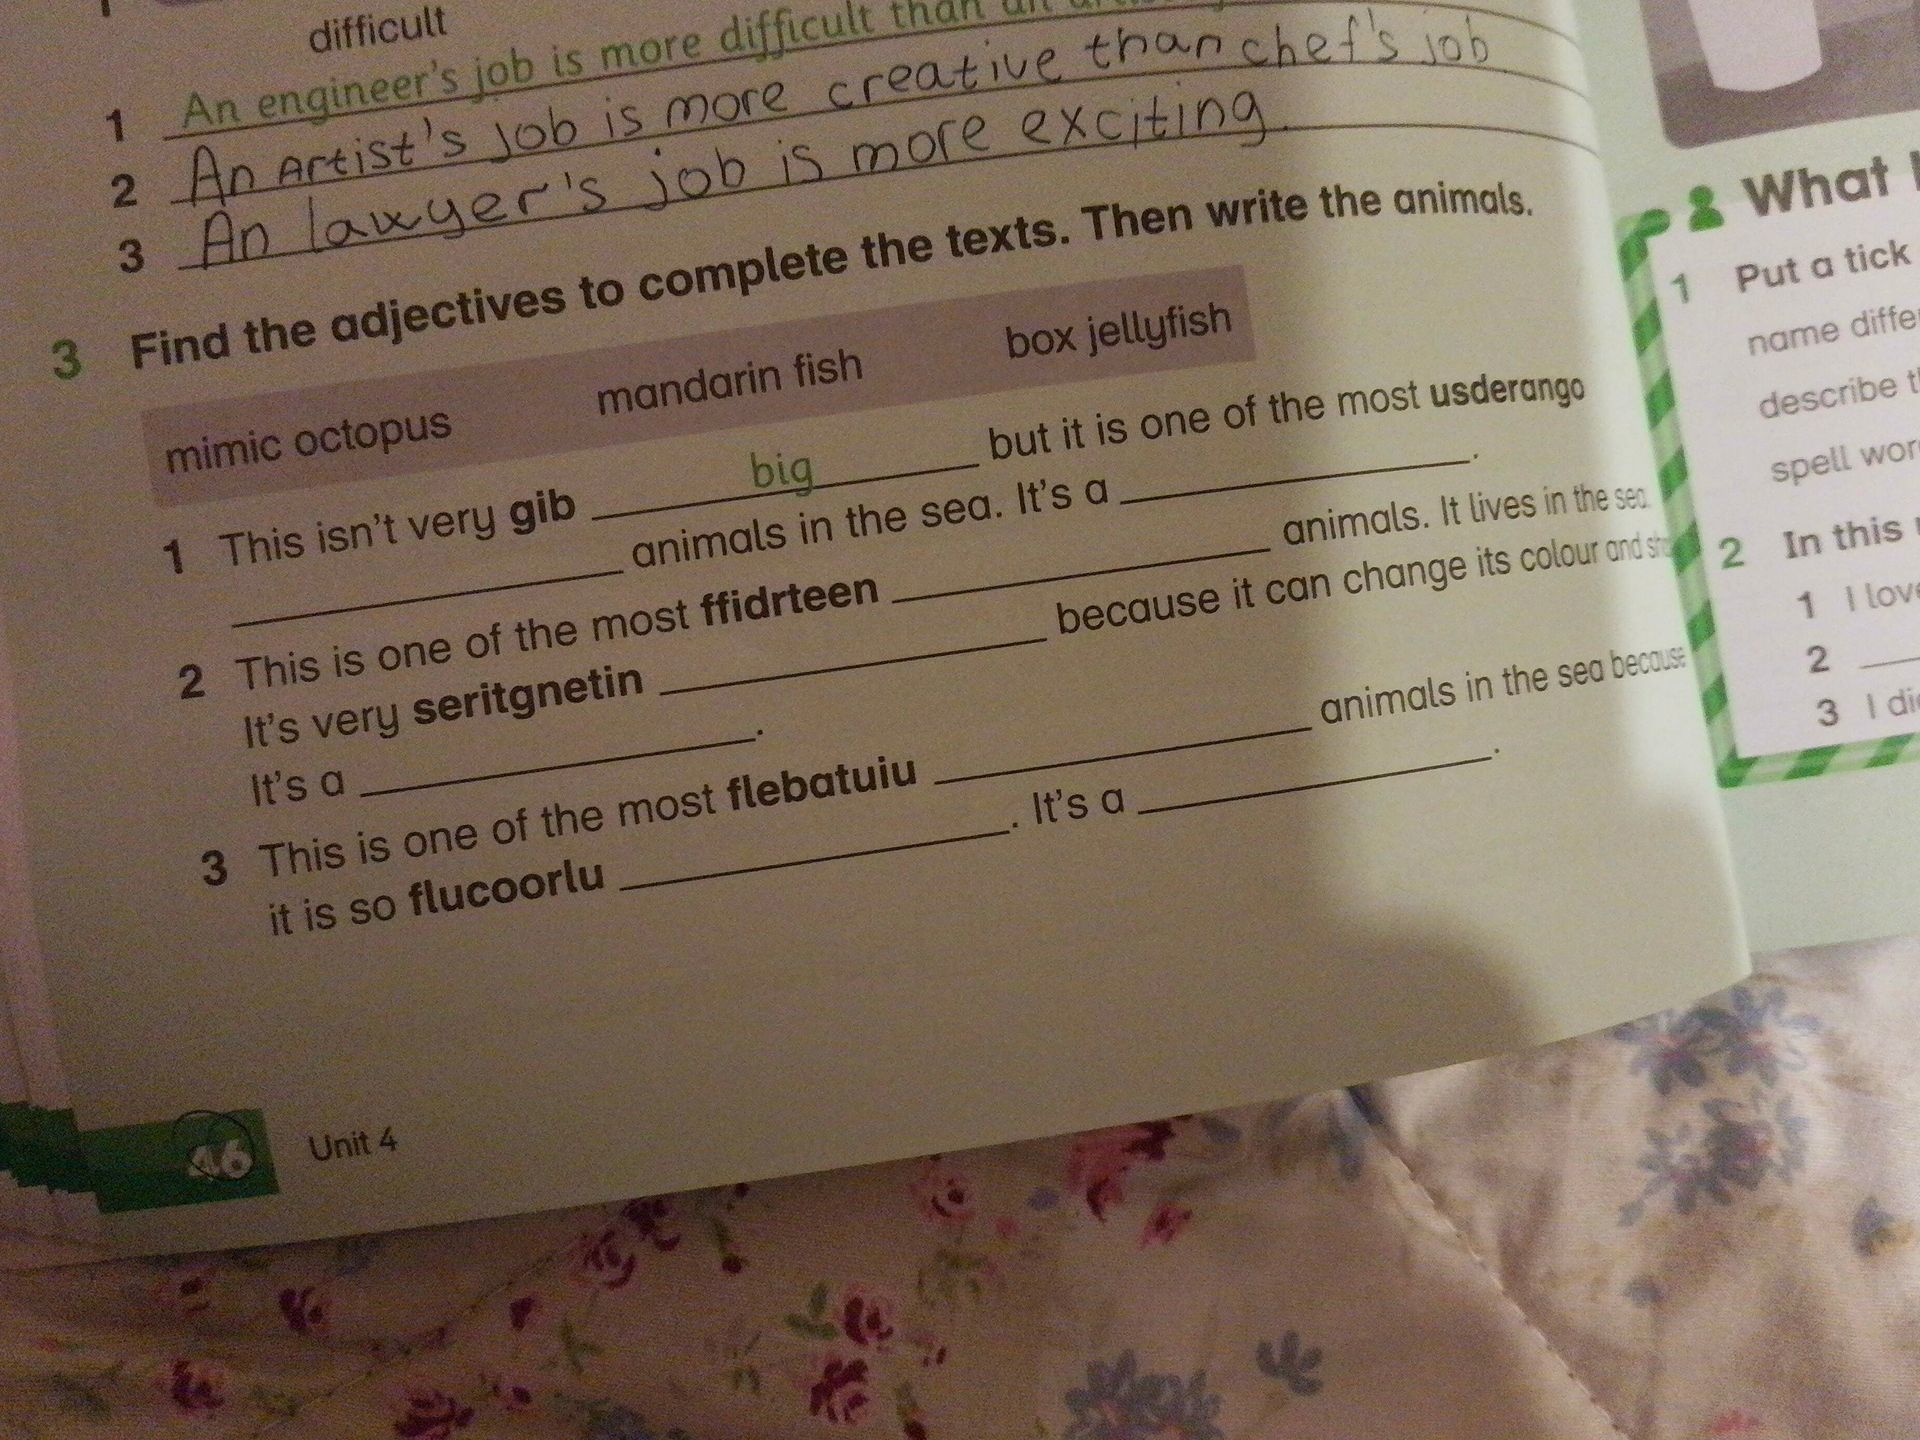 difficult
1 An engineer's job is more difficult than an
2 An Artist's job is more creative than chef's job
3 An lawyer's job is more exciting.
3 Find the adjectives to complete the texts. Then write the animals.
mimic octopus mandarin fish box jellyfish
1 This isn't very gib big but it is one of the most usderango
animals in the sea. It's a .
2 This is one of the most ffidrteen animals. It lives in the sea.
It's very seritgnetin because it can change its colour and
It's a .
3 This is one of the most flebatuiu animals in the sea because
it is so flucoorlu . It's a .
46 Unit 4
What
1 Put a tick
name
describe
spell
2 In this
1 I
2
3 I